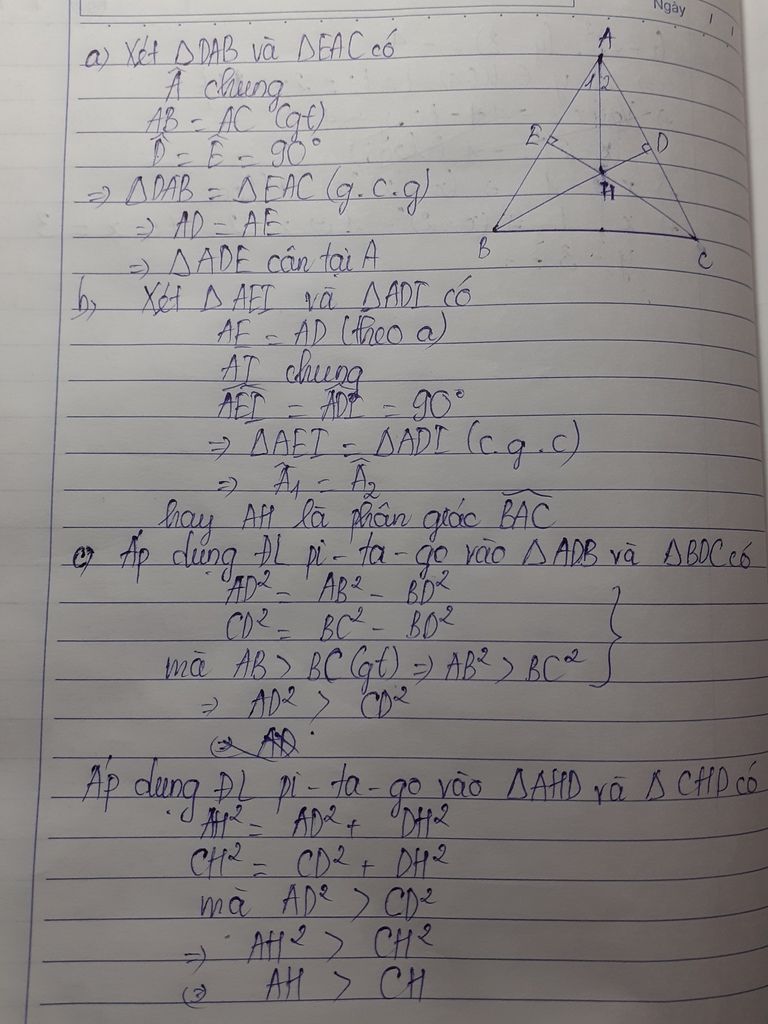 Ngày
a) Xét ΔDAB và ΔEAC có
Â chung
AB = AC (gt)
D̂ = Ê = 90°
⇒ ΔDAB = ΔEAC (g.c.g)
⇒ AD = AE
⇒ ΔADE cân tại A
A
1 2
E
D
H
B
C
b) Xét ΔAEI và ΔADI có
AE = AD (theo a)
AI chung
AEI = ADI = 90°
⇒ ΔAEI = ΔADI (c.g.c)
⇒ Â1 = Â2
hay AH là phân giác BAC
c) Áp dụng ĐL pi-ta-go vào ΔADB và ΔBDC có
AD² = AB² - BD²
CD² = BC² - BD²
mà AB > BC (gt) ⇒ AB² > BC² }
⇒ AD² > CD²
Áp dụng ĐL pi-ta-go vào ΔAHD và ΔCHD có
AH² = AD² + DH²
CH² = CD² + DH²
mà AD² > CD²
⇒ AH² > CH²
⇒ AH > CH